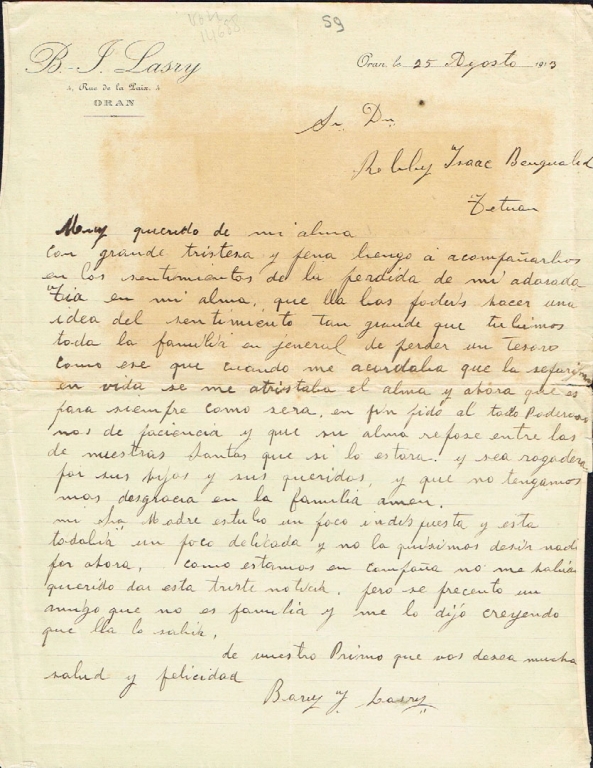 59
B. J. Lasry
3, Rue de la Paix, 3
ORAN
Oran, le 25 Agosto 1913
Sr. Dn.
Rebby Isaac Bengualid
Tetuan
Muy querido de mi alma
con grande tristesa y pena bengo á acompañarbos
en los sentimientos de la perdida de mi adorada
Tia en mi alma, que lla bos podeis hacer una
idea del sentimiento tan grande que tubimos
toda la familia en jeneral de perder un tesoro
como ese que cuando me acordaba que la
en vida se me atristaba el alma y ahora que es
para siempre como sera, en fin pido al todo Poderoso
nos de paciencia y que su alma repose entre las
de nuestras Santas que si lo estara. y sea rogadera
por sus hijos y sus queridos, y que no tengamos
mas desgracia en la familia amen.
mi Madre estubo un poco indispuesta y esta
todabia un poco delicada y no la quisimos desir nada
por ahora, como estamos en campaña no me habia
querido dar esta triste noticia, pero se precento un
amigo que no es familia y me lo dijó creyendo
que lla lo sabia,
de vuestro Primo que vos desea mucha
salud y felicidad
Lasry